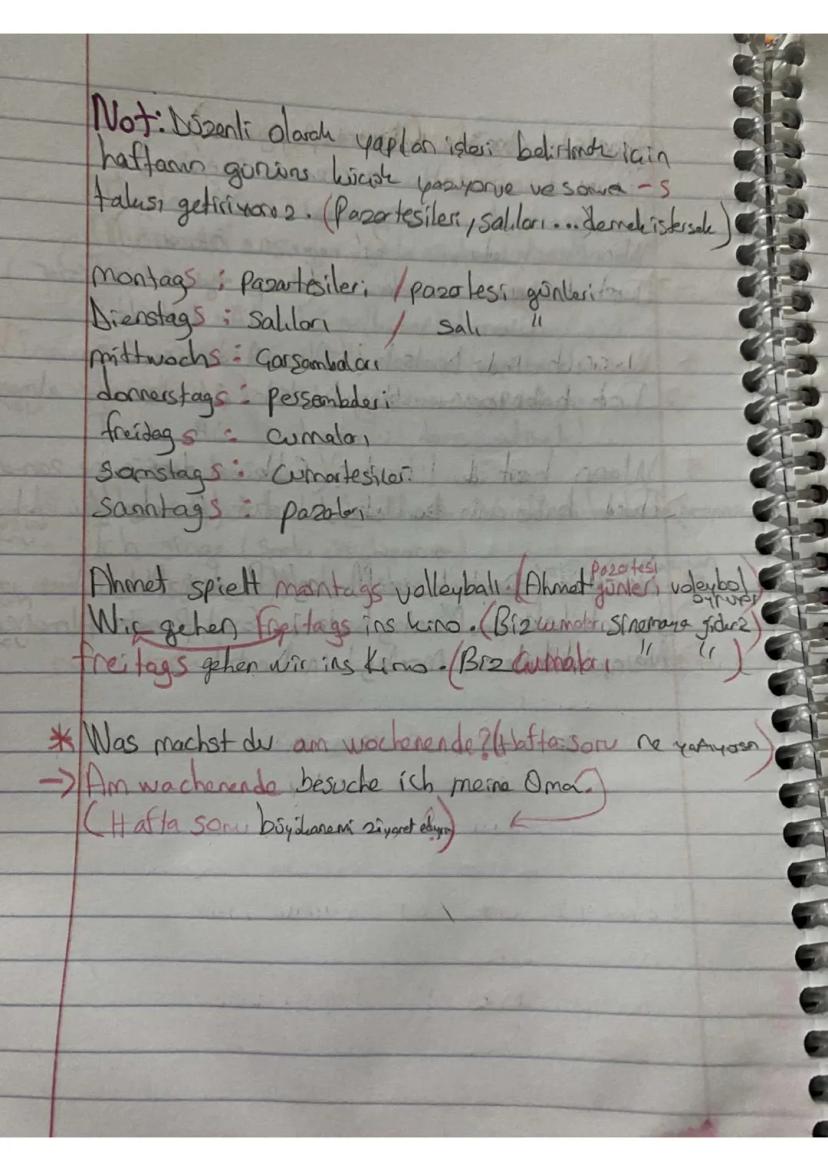 Not: Düzenli olarak yapılan işleri belirtmek için
haftanın gününü küçük yazıyoruz ve sonuna -s
takısı getiriyoruz. (Pazartesileri, salıları... demek istersek)
montags : Pazartesileri / pazartesi günleri
Dienstags : Salıları / salı "
mittwochs : Çarşambaları
donnerstags : perşembeleri
freidags : cumaları
samstags : Cumartesileri
sanntags : pazarları
Ahmet spielt montags volleyball. (Ahmet pazartesi günleri voleybol oynuyor)
Wir gehen freitags ins kino. (Biz cumaları sinemaya gideriz)
freitags gehen wir ins Kino. (Biz Cumaları " " )
* Was machst du am wochenende? (Hafta sonu ne yapıyosn)
→ Am wachenende besuche ich meine Oma.
(Hafta sonu büyükanemi ziyaret ediyorum)